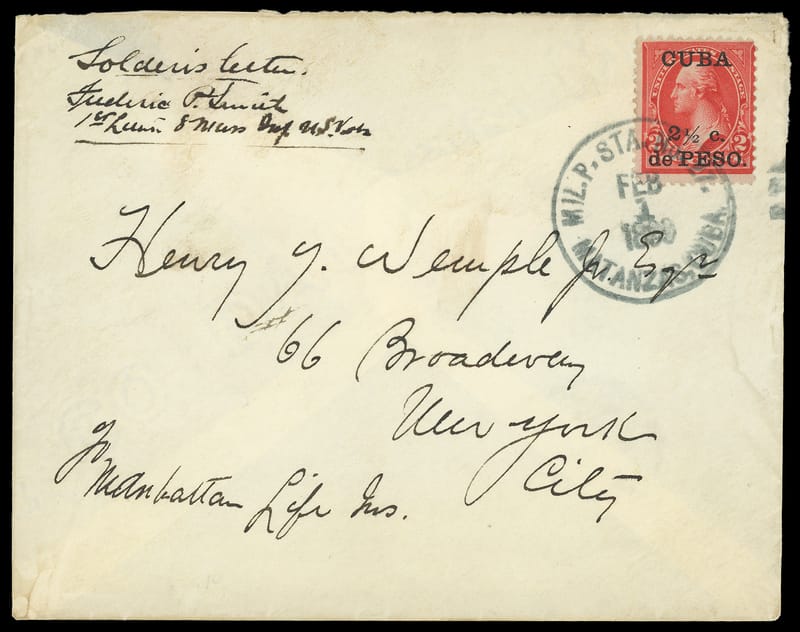 Soldier's Letter.
Frederic P. Smith
1st Lieut. 8 Mass Inf U.S. Vols
CUBA
2½ c.
de PESO.
2 2
MIL. P. STA.
FEB
1
MATANZAS, CUBA.
Henry Y. Wemple Jr. Esqr
66 Broadway
New York
City
℅
Manhattan Life Ins.